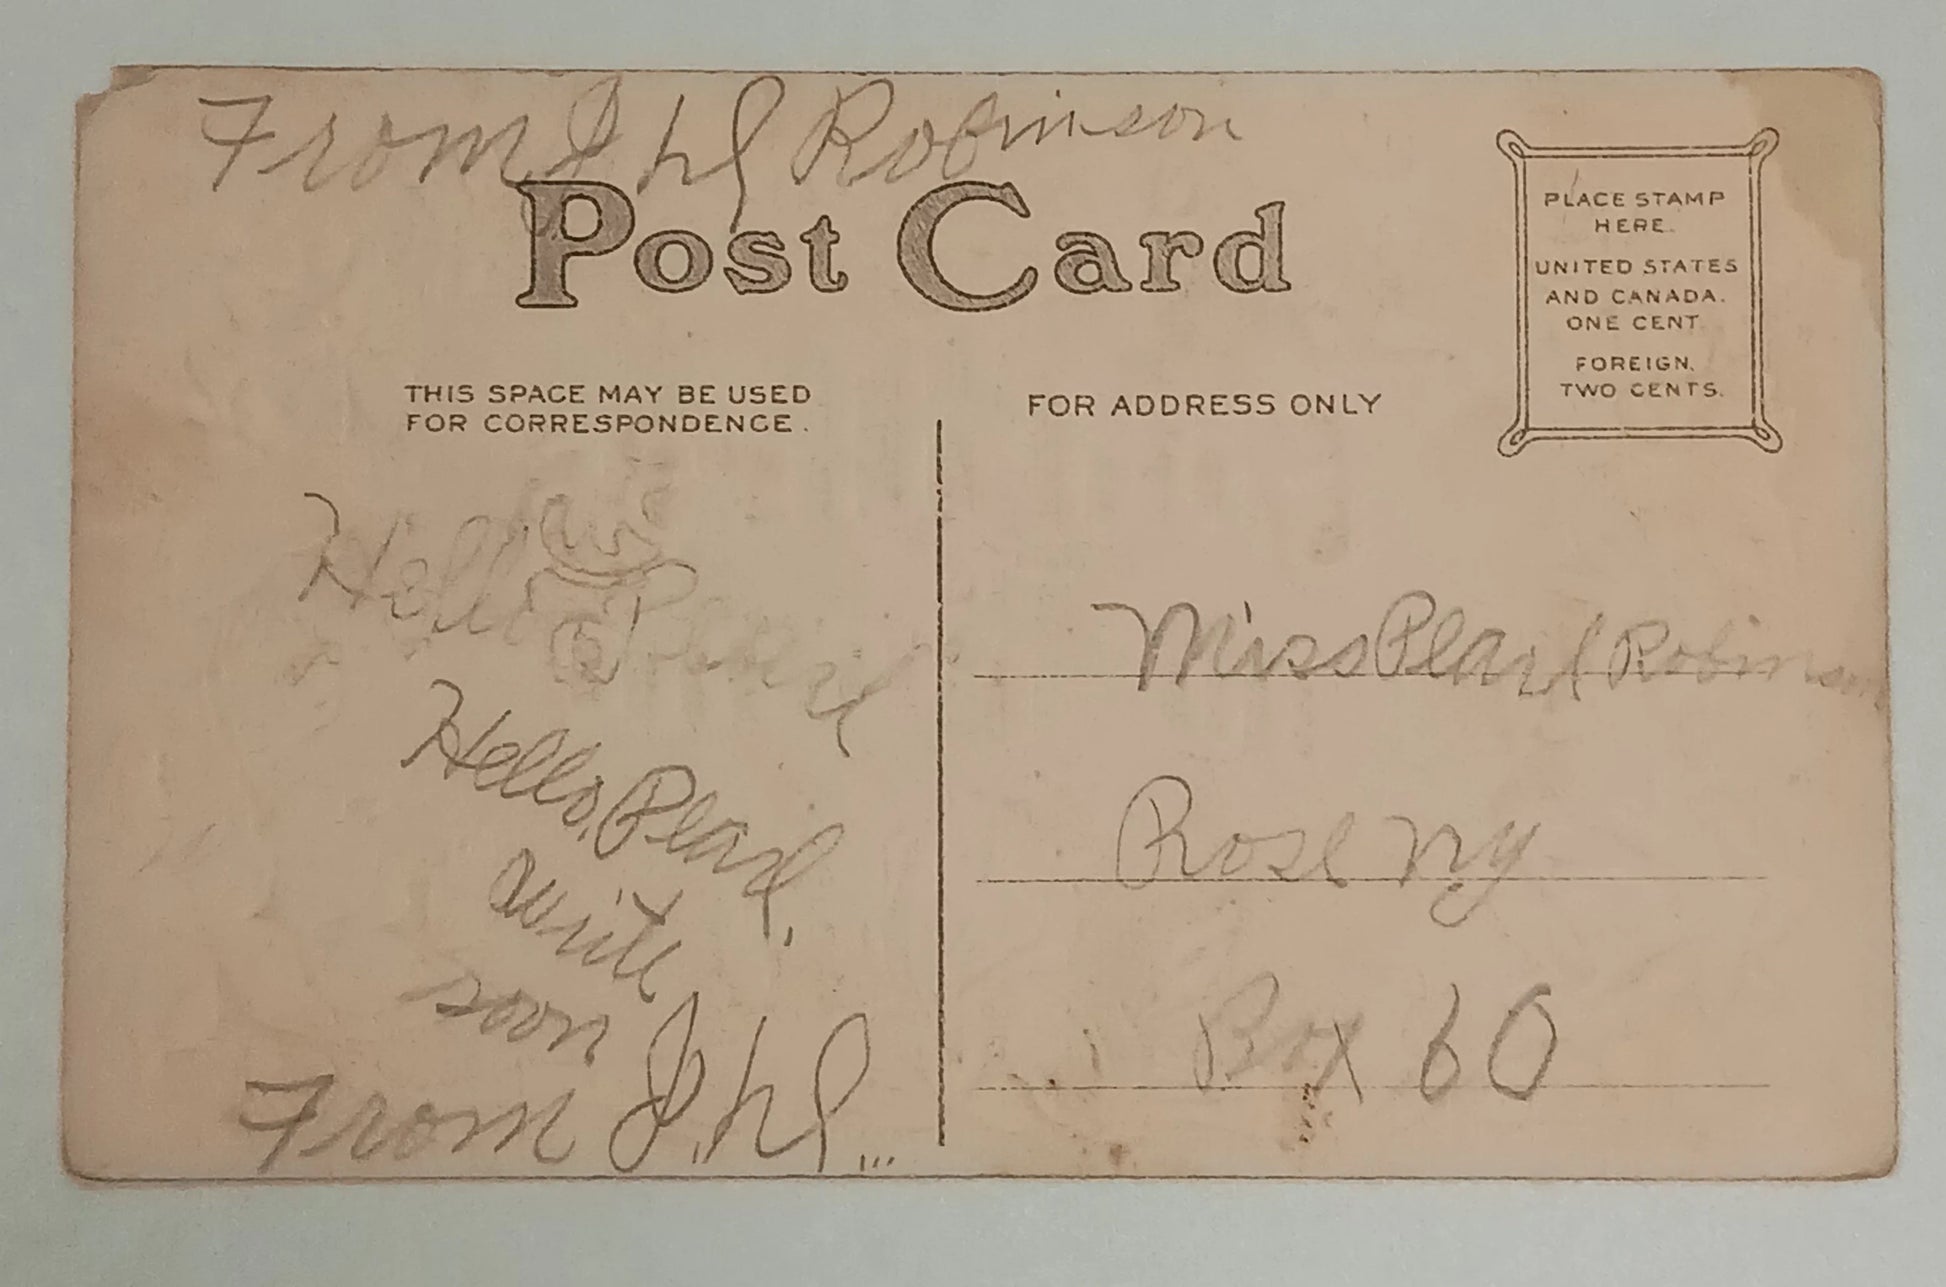 From I h J Robinson
Post Card
PLACE STAMP
HERE.
UNITED STATES
AND CANADA.
ONE CENT.
FOREIGN.
TWO CENTS.
THIS SPACE MAY BE USED
FOR CORRESPONDENCE.
FOR ADDRESS ONLY
Hello Pearl
Hello, Pearl,
write
soon
From
Miss Pearl Robinson
Rose NY
Box 60